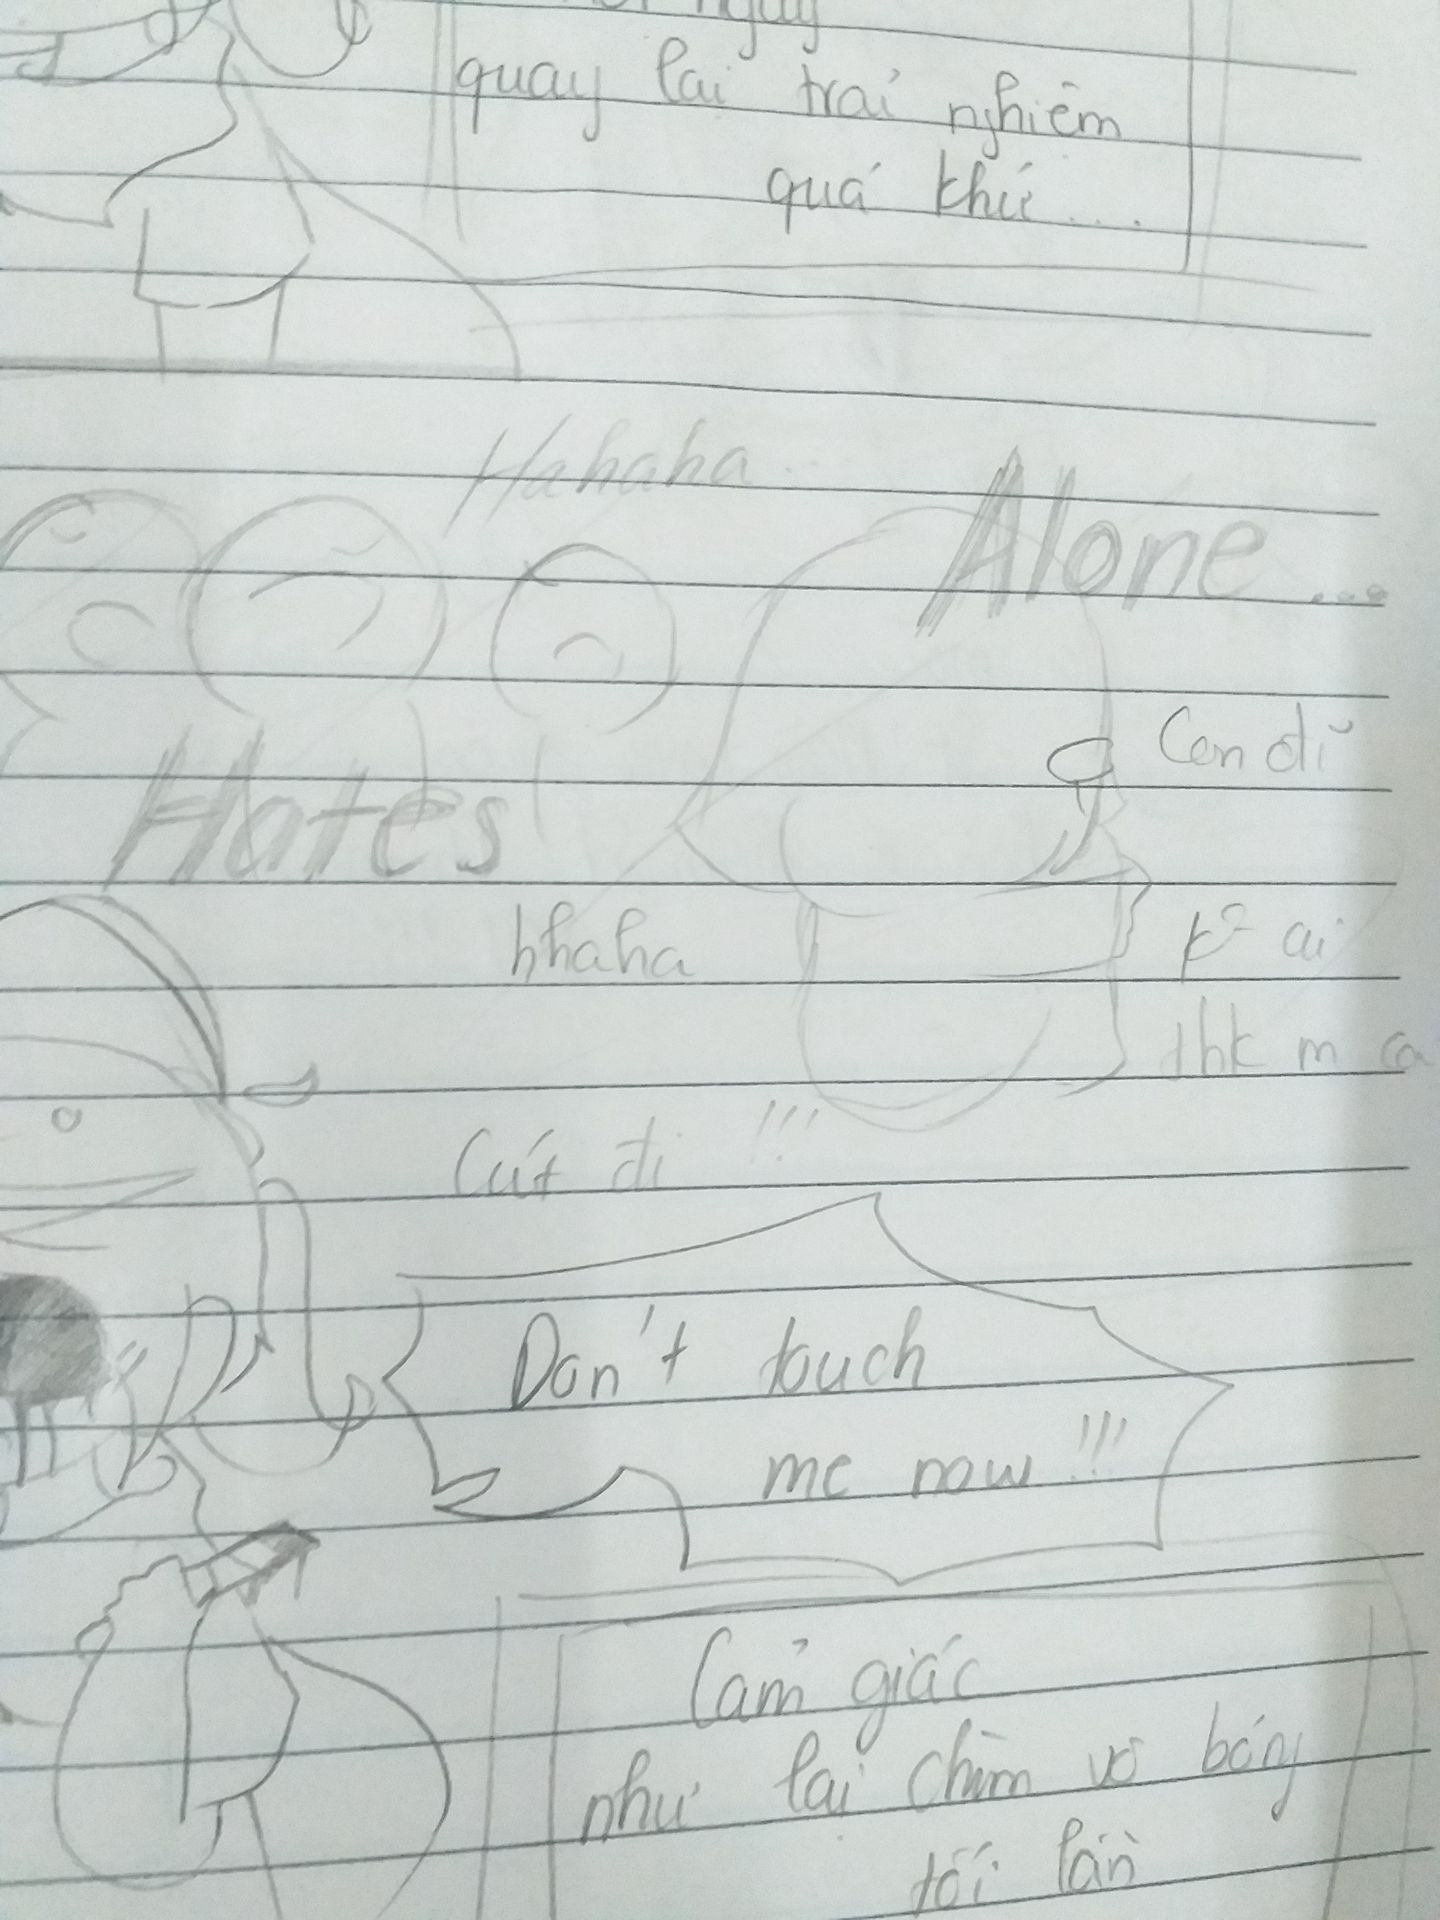 quay lại trải nghiệm
quá khứ...
Hahaha...
Alone...
Hates
Con đĩ
hhaha
k² ai
thk m cả
Cút đi !!!
Don't touch
me now !!!
Cảm giác
như lại chìm vô bóng
tối lần